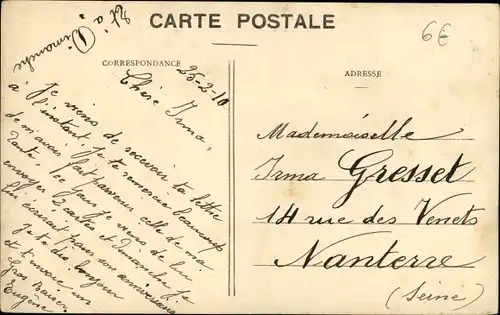 CARTE POSTALE
6€
Et à Dimanche
CORRESPONDANCE
ADRESSE
25-2-10
Chère Irma,
Je viens de recevoir ta lettre
à l'instant, je te remercie beaucoup
de m'avoir fait parvenir celle de ma
Tante. Ce jour je viens de lui
envoyer 2 cartes et Dimanche je
lui écrirait pour son anniversaire
je te dis bonjour
et t'envoie un
Gros Baiser
Eugène
Mademoiselle
Irma Gresset
14 rue des Venets
Nanterre
(Seine)